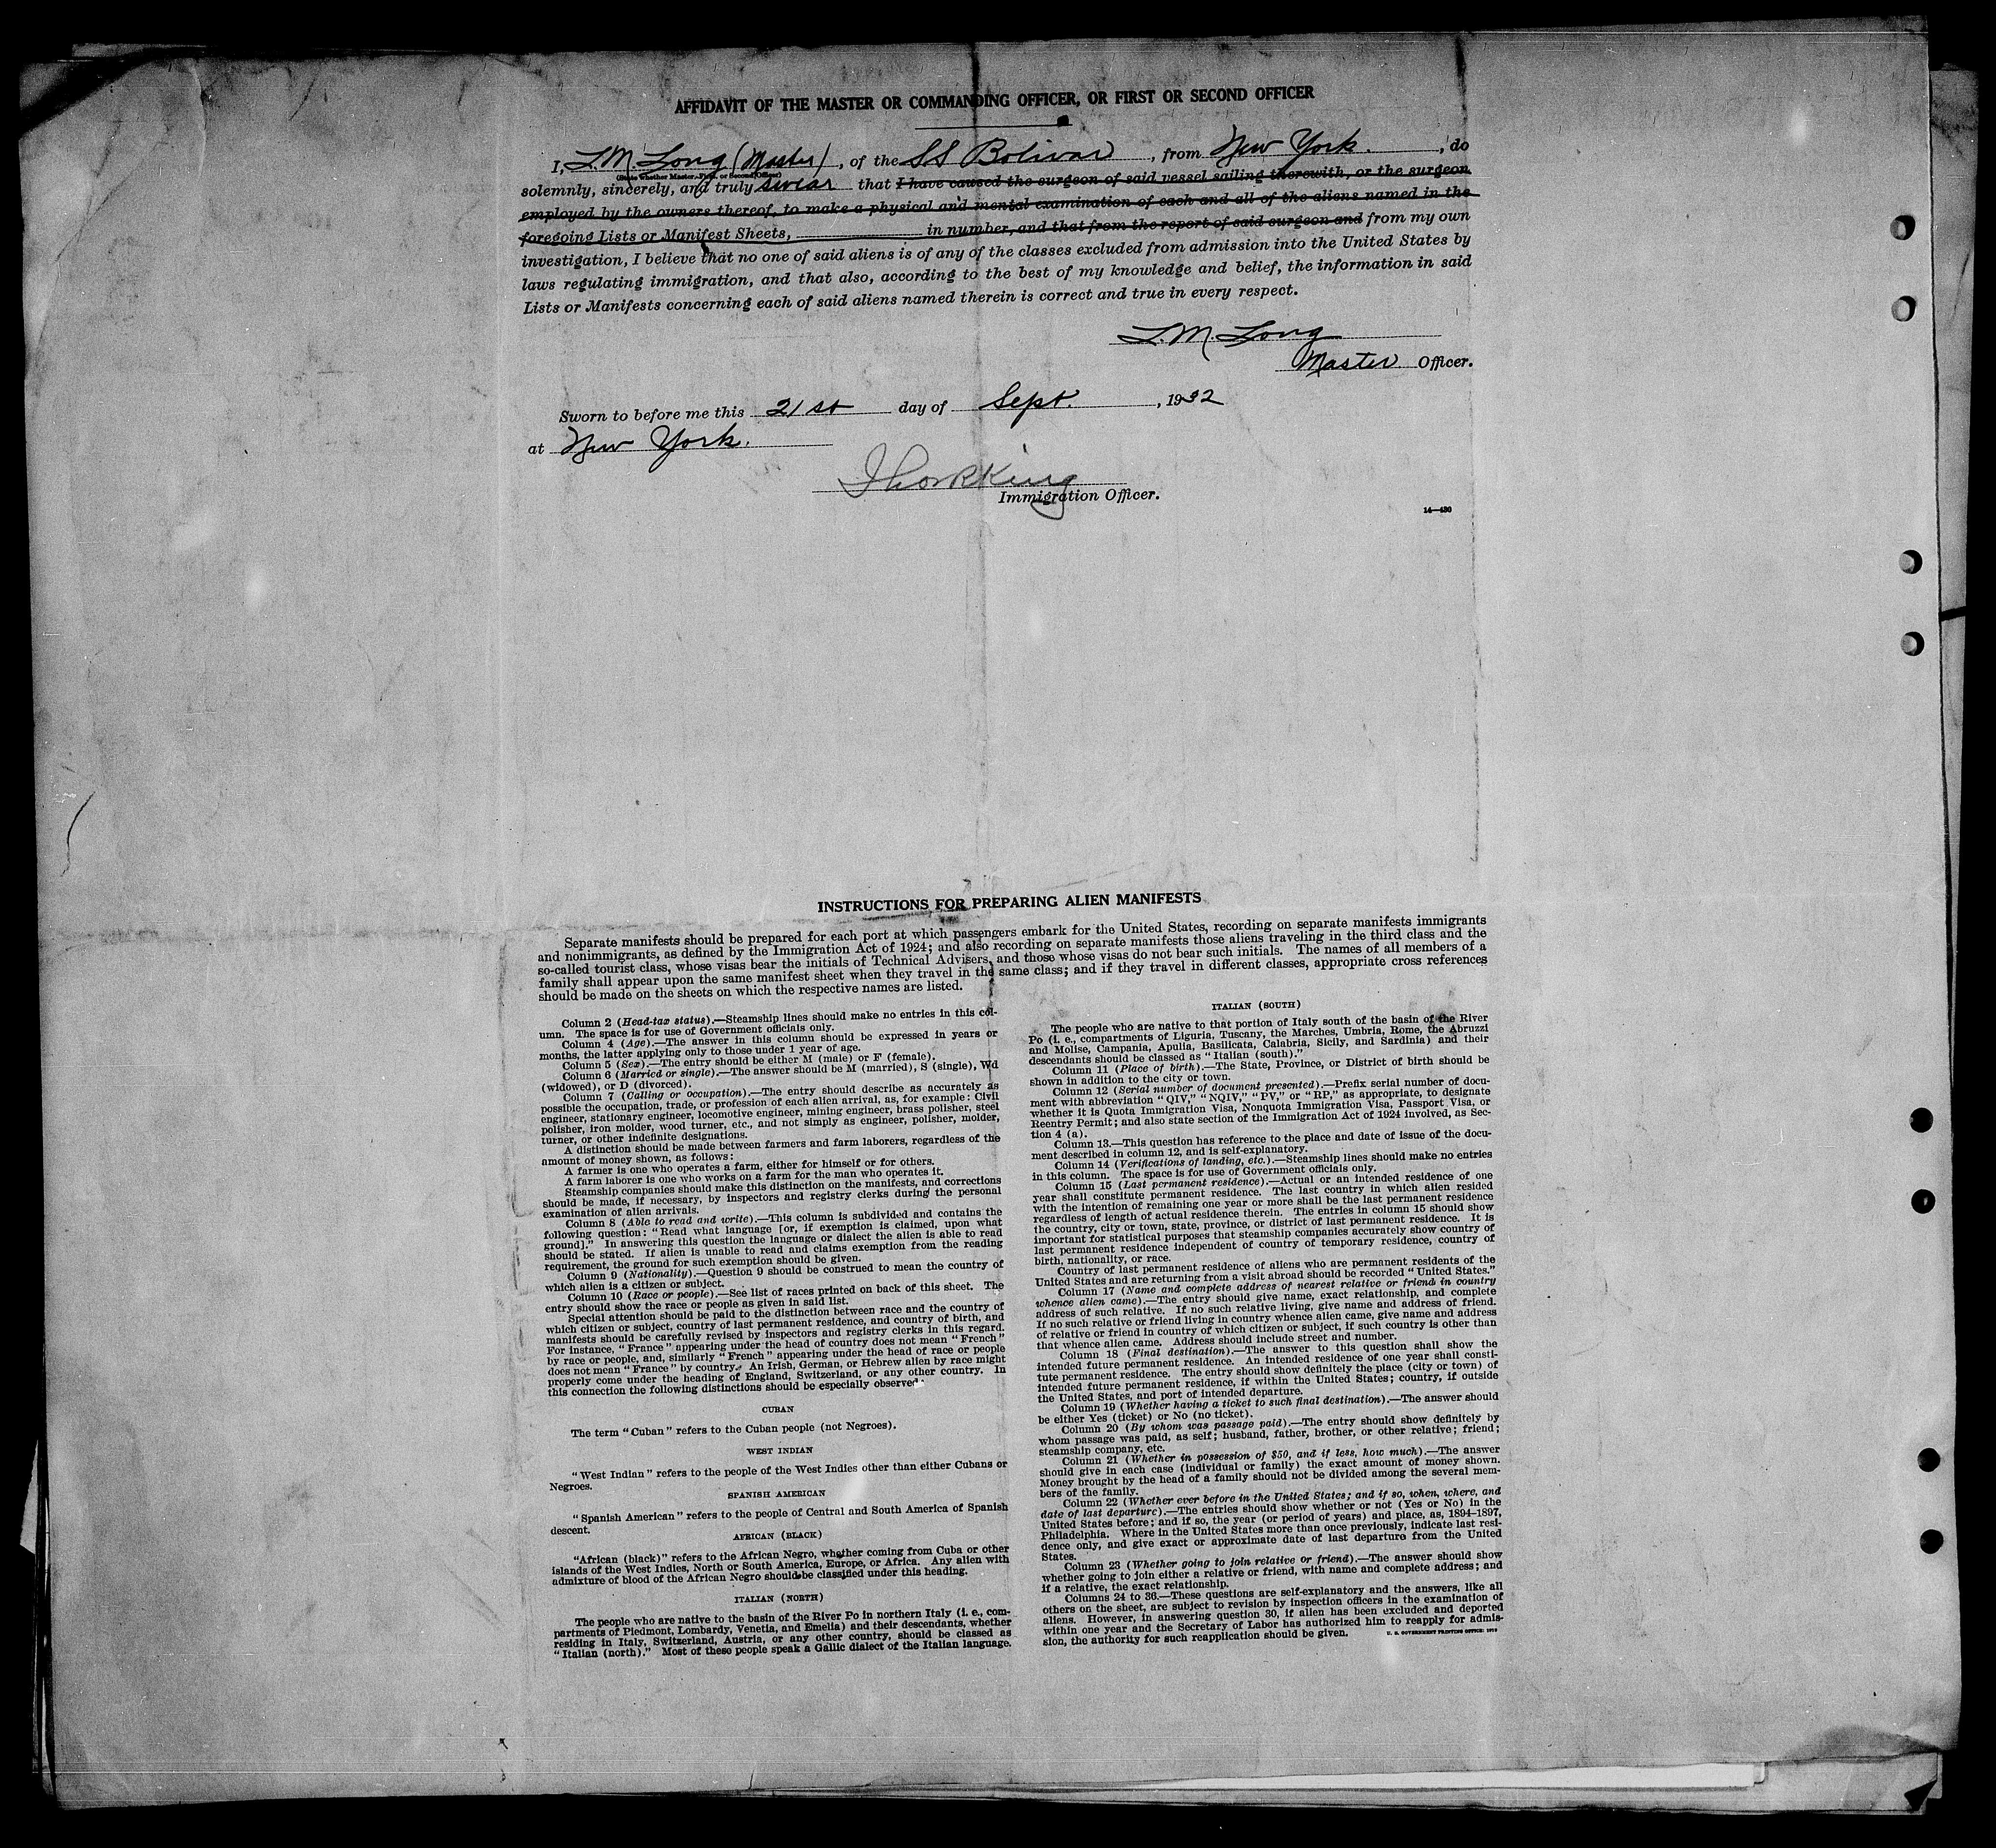 AFFIDAVIT OF THE MASTER OR COMMANDING OFFICER, OR FIRST OR SECOND OFFICER
I, L.M. Long (Master), of the SS Bolivar, from New York., do
(State whether Master, First, or Second Officer)
solemnly, sincerely, and truly swear that I have caused the surgeon of said vessel sailing therewith, or the surgeon
employed by the owners thereof, to make a physical and mental examination of each and all of the aliens named in the
foregoing Lists or Manifest Sheets, in number, and that from the report of said surgeon and from my own
investigation, I believe that no one of said aliens is of any of the classes excluded from admission into the United States by
laws regulating immigration, and that also, according to the best of my knowledge and belief, the information in said
Lists or Manifests concerning each of said aliens named therein is correct and true in every respect.
L.M. Long
Master Officer.
Sworn to before me this 21st day of Sept., 1932
at New York.
Immigration Officer.
14—430
INSTRUCTIONS FOR PREPARING ALIEN MANIFESTS
Separate manifests should be prepared for each port at which passengers embark for the United States, recording on separate manifests immigrants
and nonimmigrants, as defined by the Immigration Act of 1924; and also recording on separate manifests those aliens traveling in the third class and the
so-called tourist class, whose visas bear the initials of Technical Advisers, and those whose visas do not bear such initials. The names of all members of a
family shall appear upon the same manifest sheet when they travel in the same class; and if they travel in different classes, appropriate cross references
should be made on the sheets on which the respective names are listed.
Column 2 (Head-tax status).—Steamship lines should make no entries in this col-
umn. The space is for use of Government officials only.
Column 4 (Age).—The answer in this column should be expressed in years or
months, the latter applying only to those under 1 year of age.
Column 5 (Sex).—The entry should be either M (male) or F (female).
Column 6 (Married or single).—The answer should be M (married), S (single), Wd
(widowed), or D (divorced).
Column 7 (Calling or occupation).—The entry should describe as accurately as
possible the occupation, trade, or profession of each alien arrival, as, for example: Civil
engineer, stationary engineer, locomotive engineer, mining engineer, brass polisher, steel
polisher, iron molder, wood turner, etc., and not simply as engineer, polisher, molder,
turner, or other indefinite designations.
A distinction should be made between farmers and farm laborers, regardless of the
amount of money shown, as follows:
A farmer is one who operates a farm, either for himself or for others.
A farm laborer is one who works on a farm for the man who operates it.
Steamship companies should make this distinction on the manifests, and corrections
should be made, if necessary, by inspectors and registry clerks during the personal
examination of alien arrivals.
Column 8 (Able to read and write).—This column is subdivided and contains the
following question: "Read what language [or, if exemption is claimed, upon what
ground]." In answering this question the language or dialect the alien is able to read
should be stated. If alien is unable to read and claims exemption from the reading
requirement, the ground for such exemption should be given.
Column 9 (Nationality).—Question 9 should be construed to mean the country of
which alien is a citizen or subject.
Column 10 (Race or people).—See list of races printed on back of this sheet. The
entry should show the race or people as given in said list.
Special attention should be paid to the distinction between race and the country of
which citizen or subject, country of last permanent residence, and country of birth, and
manifests should be carefully revised by inspectors and registry clerks in this regard.
For instance, "France" appearing under the head of country does not mean "French"
by race or people, and, similarly "French" appearing under the head of race or people
does not mean "France" by country. An Irish, German, or Hebrew alien by race might
properly come under the heading of England, Switzerland, or any other country. In
this connection the following distinctions should be especially observed:
CUBAN
The term "Cuban" refers to the Cuban people (not Negroes).
WEST INDIAN
"West Indian" refers to the people of the West Indies other than either Cubans or
Negroes.
SPANISH AMERICAN
"Spanish American" refers to the people of Central and South America of Spanish
descent.
AFRICAN (BLACK)
"African (black)" refers to the African Negro, whether coming from Cuba or other
islands of the West Indies, North or South America, Europe, or Africa. Any alien with
admixture of blood of the African Negro should be classified under this heading.
ITALIAN (NORTH)
The people who are native to the basin of the River Po in northern Italy (i. e., com-
partments of Piedmont, Lombardy, Venetia, and Emelia) and their descendants, whether
residing in Italy, Switzerland, Austria, or any other country, should be classed as
"Italian (north)." Most of these people speak a Gallic dialect of the Italian language.
ITALIAN (SOUTH)
The people who are native to that portion of Italy south of the basin of the River
Po (i. e., compartments of Liguria, Tuscany, the Marches, Umbria, Rome, the Abruzzi
and Molise, Campania, Apulia, Basilicata, Calabria, Sicily, and Sardinia) and their
descendants should be classed as "Italian (south)."
Column 11 (Place of birth).—The State, Province, or District of birth should be
shown in addition to the city or town.
Column 12 (Serial number of document presented).—Prefix serial number of docu-
ment with abbreviation "QIV," "NQIV," "PV," or "RP," as appropriate, to designate
whether it is Quota Immigration Visa, Nonquota Immigration Visa, Passport Visa, or
Reentry Permit; and also state section of the Immigration Act of 1924 involved, as Sec-
tion 4 (a).
Column 13.—This question has reference to the place and date of issue of the docu-
ment described in column 12, and is self-explanatory.
Column 14 (Verifications of landing, etc.).—Steamship lines should make no entries
in this column. The space is for use of Government officials only.
Column 15 (Last permanent residence).—Actual or an intended residence of one
year shall constitute permanent residence. The last country in which alien resided
with the intention of remaining one year or more shall be the last permanent residence
regardless of length of actual residence therein. The entries in column 15 should show
the country, city or town, state, province, or district of last permanent residence. It is
important for statistical purposes that steamship companies accurately show country of
last permanent residence independent of country of temporary residence, country of
birth, nationality, or race.
Country of last permanent residence of aliens who are permanent residents of the
United States and are returning from a visit abroad should be recorded "United States."
Column 17 (Name and complete address of nearest relative or friend in country
whence alien came).—The entry should give name, exact relationship, and complete
address of such relative. If no such relative living, give name and address of friend.
If no such relative or friend living in country whence alien came, give name and address
of relative or friend in country of which citizen or subject, if such country is other than
that whence alien came. Address should include street and number.
Column 18 (Final destination).—The answer to this question shall show the
intended future permanent residence. An intended residence of one year shall consti-
tute permanent residence. The entry should show definitely the place (city or town) of
intended future permanent residence, if within the United States; country, if outside
the United States, and port of intended departure.
Column 19 (Whether having a ticket to such final destination).—The answer should
be either Yes (ticket) or No (no ticket).
Column 20 (By whom was passage paid).—The entry should show definitely by
whom passage was paid, as self; husband, father, brother, or other relative; friend;
steamship company, etc.
Column 21 (Whether in possession of $50, and if less, how much).—The answer
should give in each case (individual or family) the exact amount of money shown.
Money brought by the head of a family should not be divided among the several mem-
bers of the family.
Column 22 (Whether ever before in the United States; and if so, when, where, and
date of last departure).—The entries should show whether or not (Yes or No) in the
United States before; and if so, the year (or period of years) and place, as, 1894-1897,
Philadelphia. Where in the United States more than once previously, indicate last resi-
dence only, and give exact or approximate date of last departure from the United
States.
Column 23 (Whether going to join relative or friend).—The answer should show
whether going to join either a relative or friend, with name and complete address; and
if a relative, the exact relationship.
Columns 24 to 36.—These questions are self-explanatory and the answers, like all
others on the sheet, are subject to revision by inspection officers in the examination of
aliens. However, in answering question 30, if alien has been excluded and deported
within one year and the Secretary of Labor has authorized him to reapply for admis-
sion, the authority for such reapplication should be given.
U. S. GOVERNMENT PRINTING OFFICE: